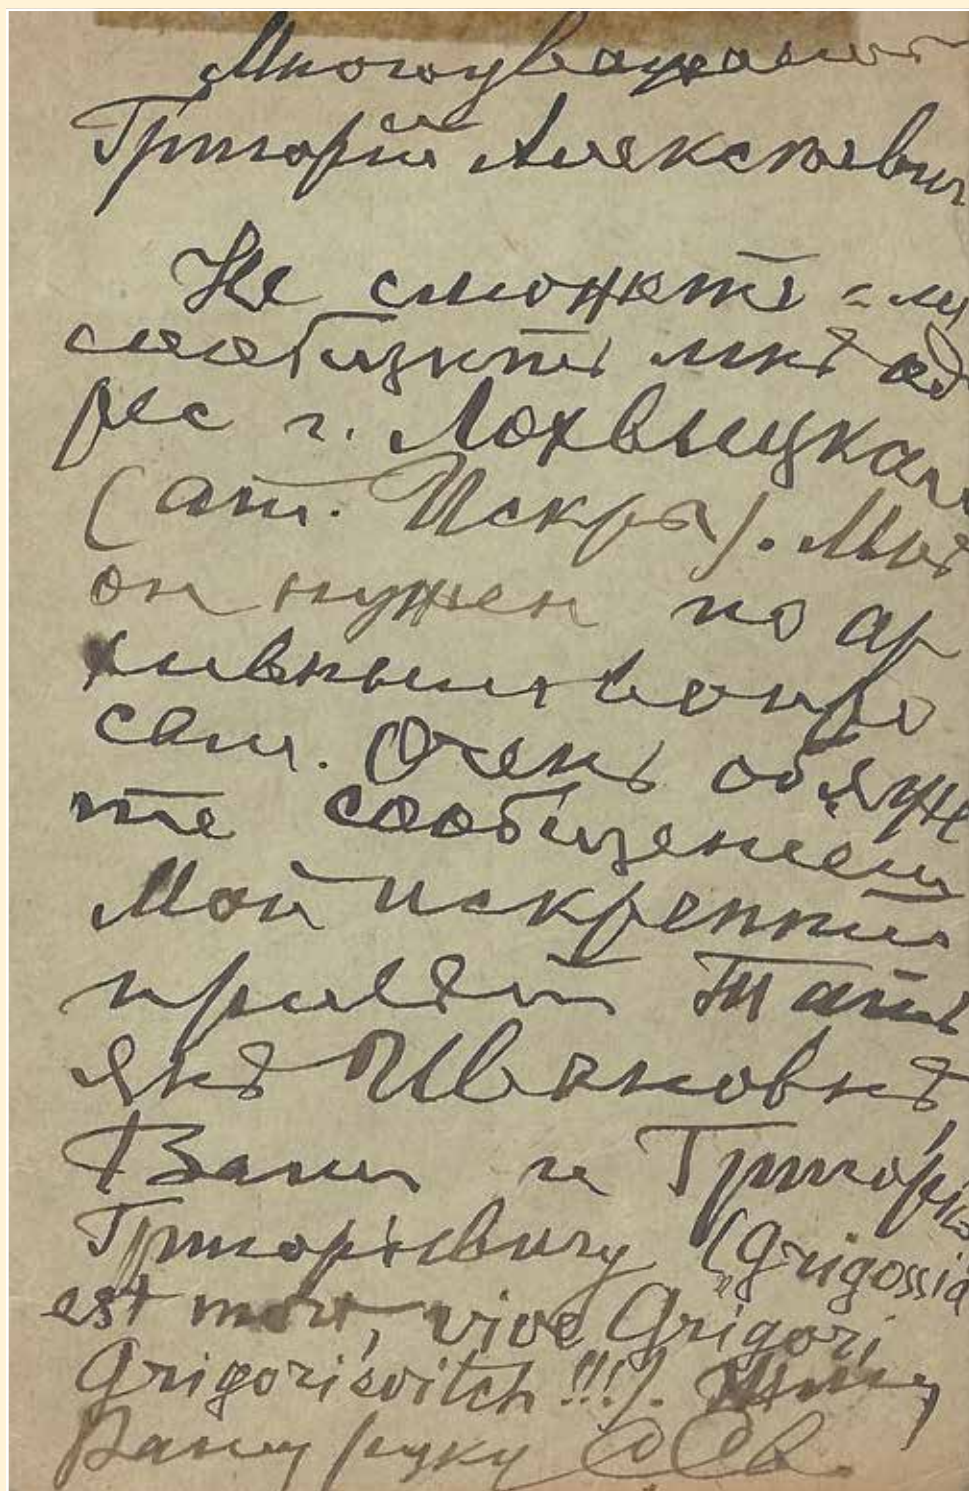 Многоуважаемый
Григорій Алексѣевич
Не сможете-ли
сообщить мнѣ ад
рес г. Лохвицкаго
(ат. Искра). Мнѣ
он нужен по ар
хивным вопро
сам. Очень обяже
те сообщеніем
Мой искренній
привѣт Тать
янѣ Ивановнѣ,
Вам и Григорію
Григорьевичу ("Grigossia
est mort, vive Grigori
Grigorievitch!!!).
Вашу руку